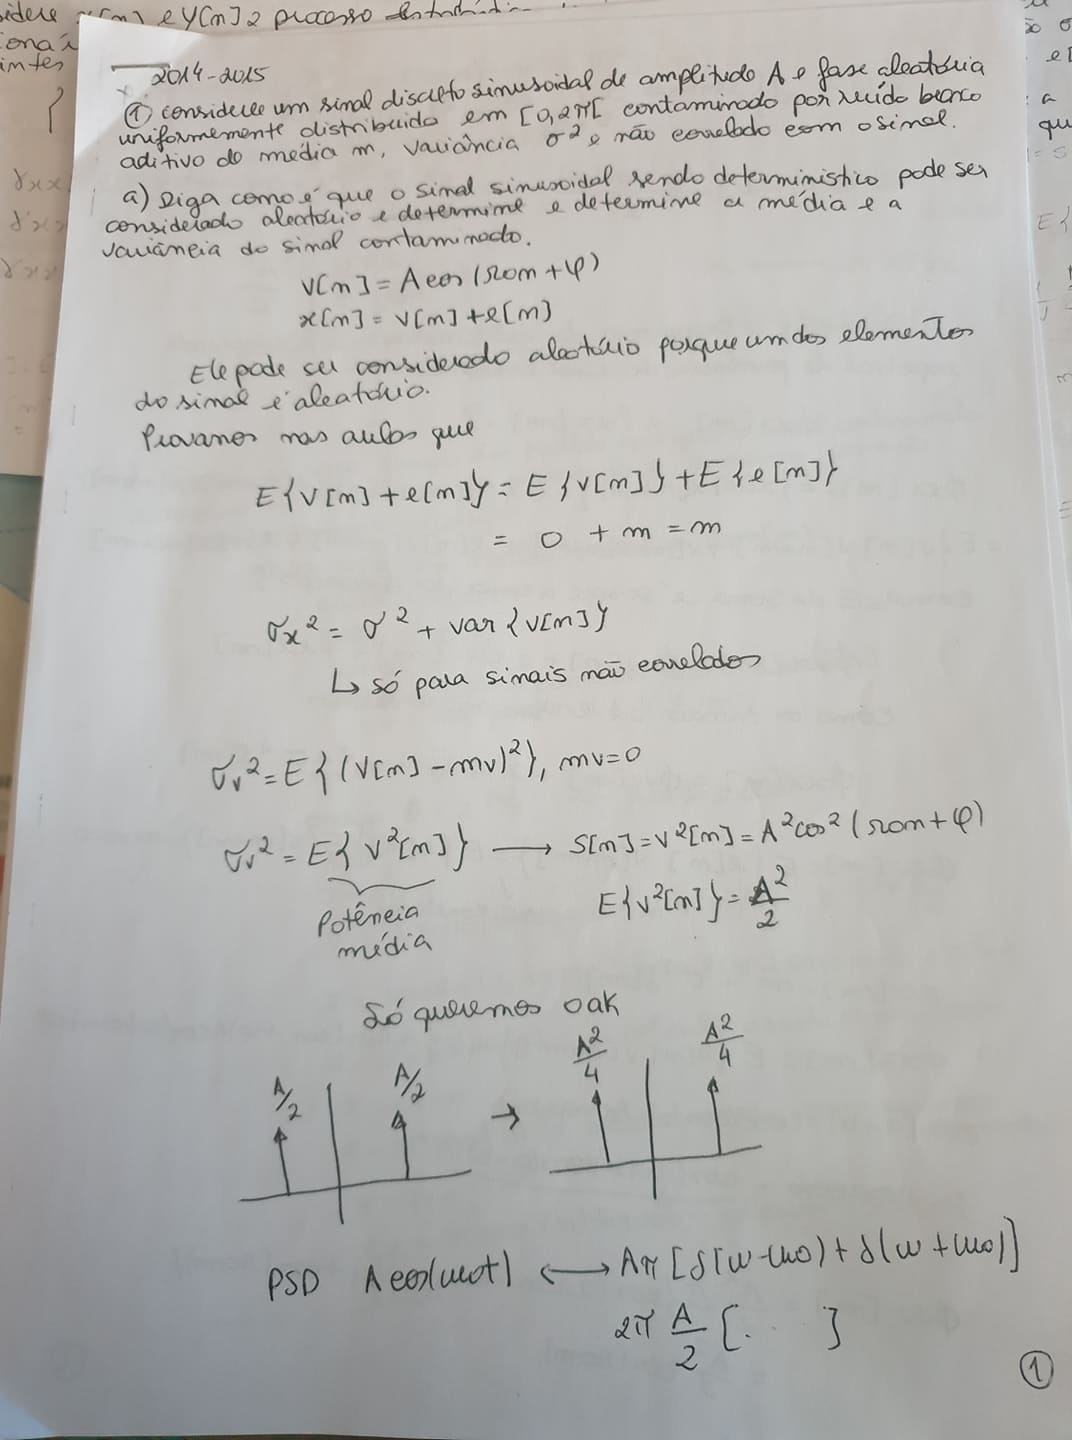 sidere x[n] e y[n] 2 processo
2014-2015
① considere um sinal discreto sinusoidal de amplitude A e fase aleatória
uniformemente distribuida em [0,2π[ contaminado por ruído branco
aditivo de média m, variância σ² e não correlado com o sinal.
a) Diga como é que o sinal sinusoidal sendo deterministico pode ser
considerado aleatório e determine e determine a média e a
variância do sinal contaminado.
v[n] = A cos (Ω0n + φ)
x[n] = v[n] + e[n]
Ele pode ser considerado aleatório porque um dos elementos
do sinal é aleatório.
Provamos nas aulas que
E{v[n] + e[n]} = E{v[n]} + E{e[n]}
= 0 + m = m
σx² = σ² + var{v[n]}
↳ só para sinais não correlados
σv² = E{(v[n] - mv)²}, mv=0
σv² = E{v²[n]} → s[n] = v²[n] = A²cos²(Ω0n + φ)
Potência
média
E{v²[n]} = A²/2
Só queremos o ak
A/2 A/2 → A²/4 A²/4
PSD A cos(ω0t) ↔ Aπ[δ(ω-ω0) + δ(ω+ω0)]
2π A/2 [. . ]
①